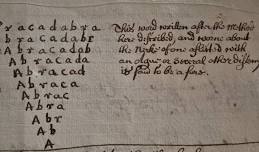 r a c a d a b r a
b r a c a d a b r
A b r a c a d a b
A b r a c a d a
A b r a c a d
A b r a c a
A b r a c
A b r a
A b r
A b
A
This word written after the Method
here described, and worne about
the Necke of one afflicted with
an Ague or several other
is said to be a Cure.